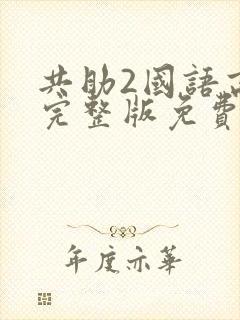 共助2國語
完整版免費
年度亦華